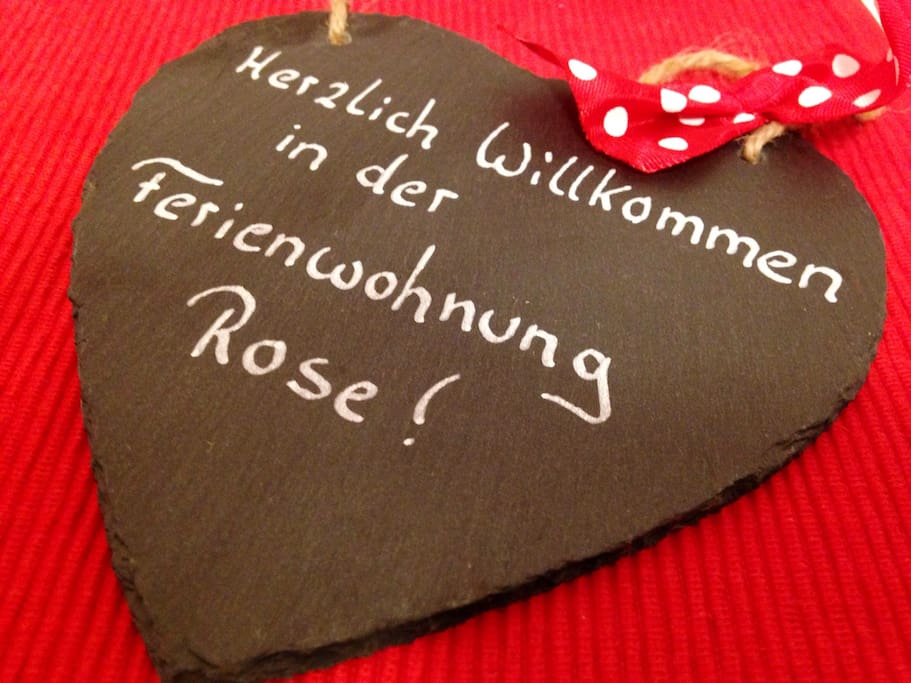 Herzlich Willkommen
in der
Ferienwohnung
Rose!